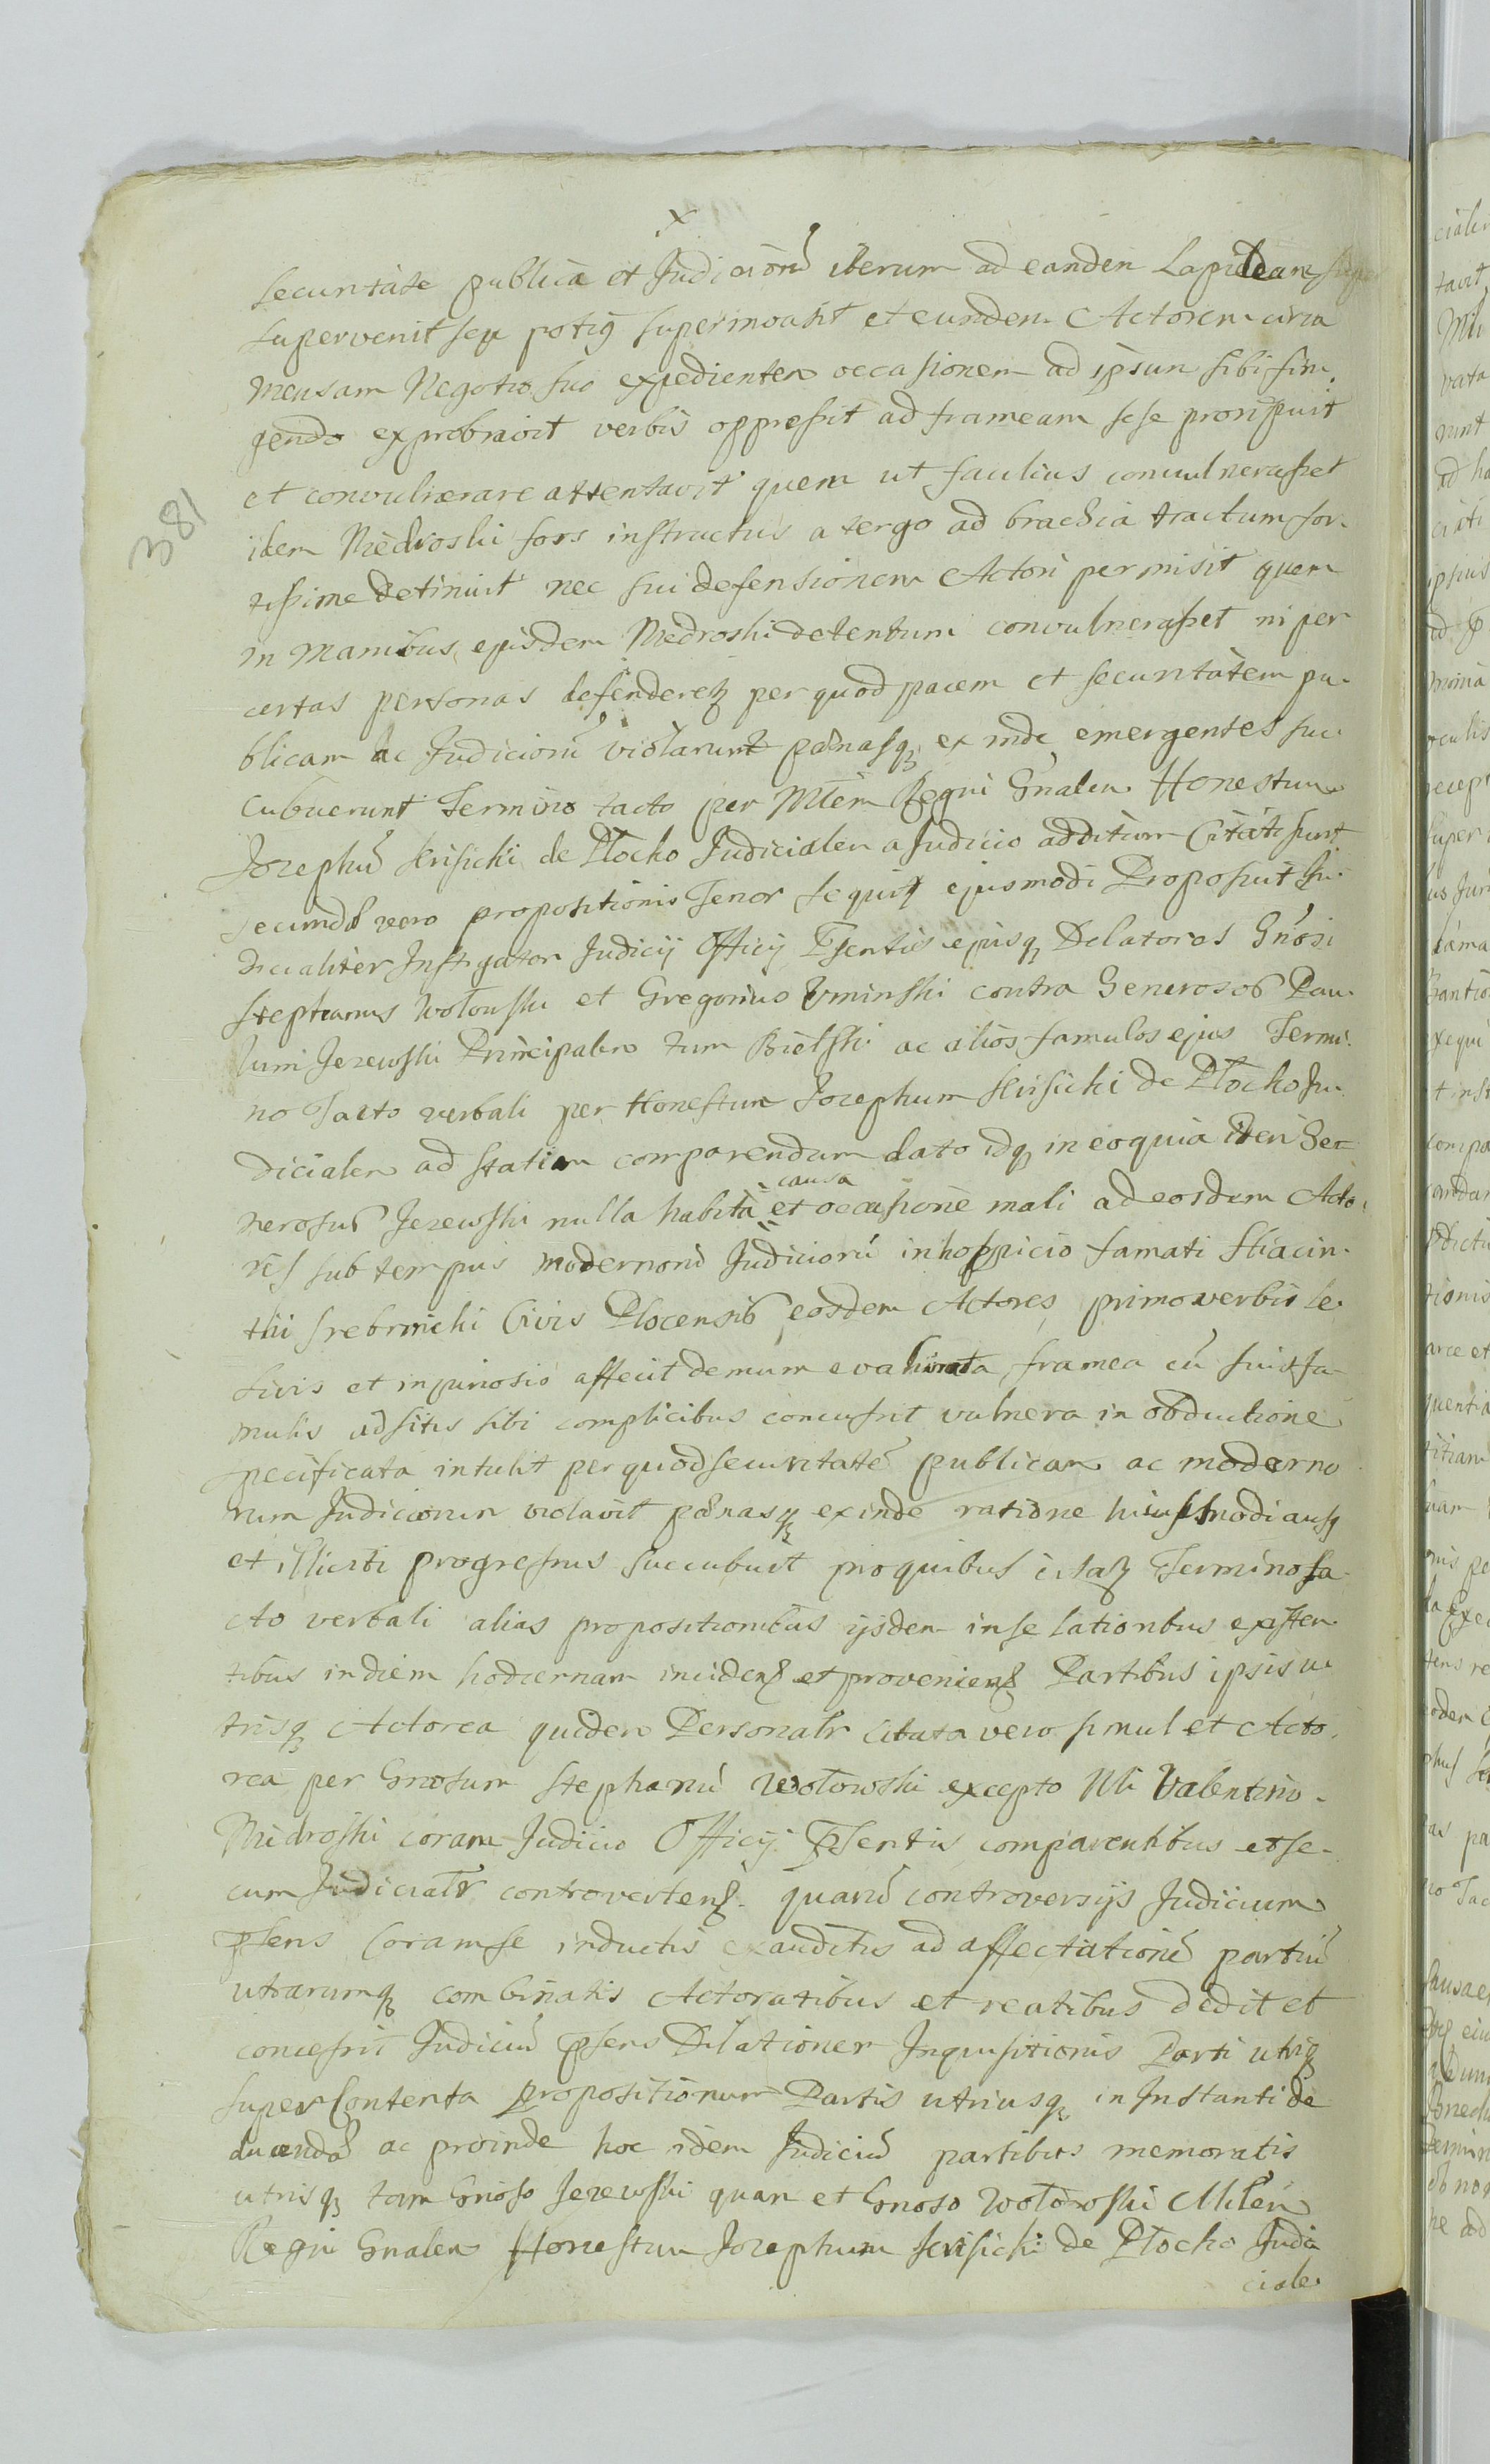 x
securitate publica et Judiciorũ iterum ad eandem Lapideam
supervenit seu potiq̃ superinvasit et eundem Actorem circa
mensam Negotio suo expedientem occasionem ad ipsum sibi fin
gendo exprobravit verbis oppressit ad frameam sese proripuit
et convulnerare attentavit quem ut facilius convulnerasset
idem Miedroski fors instructus a tergo ad brachia tractum for
tissime detinuit nec sui defensionem Actori permisit quem
in manibus ejusdem Medroski detentum convulnerasset ni per
certas personas defenderetz per quod pacem et securitatem pu
blicam ac Judiciorũ violarunt pœnasq; ex inde emergentes suc
cubuerunt Termino tacto per Mtem Regni Gñalem Honestum
Jozephũ Krisicki de Plocko Judicialem a Judicio additum Citati sunt
secundæ vero propositionis Tenor sequitr ejusmodi Proposuit Ju
dicialiter Instigator Judicij Officij Pñsentis ejusq; Delatores Gñosi
Stephanus Wołowski et Gregorius Uminski contra Generosos Pau
lum Jezewski Principalem tum Bielski ac alios famulos ejus Termi
no Tacto verbali per Honestum Jozephum Krisicki de Plocko Ju
dicialem ad statim comparendum dato idq; in eo quia idem Ge
nerosus Jezewski nulla habita causa et occasione mali ad eosdem Acto
res sub tempus modernorũ Judiciorũ in hospicio famati Hiacin
thi Srebrnicki Civis Plocensis eosdem Actores primo verbis le
sivis et injuriosis affecit demum evaginata framea cũ suis fa
mulis adsitis sibi complicibus concussit vulnera in obductione
specificata intulit per quod securitatẽ publicam ac moderno
rum Judiciorum violavit pœnasq; exinde ratione hujusmodi ausq
et illiciti progressus succubuit pro quibus citatz Termino Ta
cto verbali alias propositionibus ijsdem in se lationibus existen
tibus in diem hodiernam inciden et provenien Partibus ipsis u
trisq; Actorea quidem Personalr Citata vero simul et Acto
rea per Gnosum Stephanũ Wołowski excepto Nli Valentino
Miedroski coram Judicio Officij Pñsentis comparentibus et se
cum Judicialr controverten quarũ controversijs Judicium
Pñsens Coram se inductis exauditis ad affectationẽ partiũ
utrarumq; combinatis Actoratibus et reatibus dedit et
concessit Judiciũ Pñsens Dilationem Inquisitionis Parti utriq
super Contenta propositionum Partis utriusq; in Instanti de
ducendã ac proinde hoc idem Judiciũ partibus memoratis
utrisq; tam Gnoso Jezewski quam et Gnoso Wołowski Mltem
Regni Gnalem Honestum Jozephum Krisicki de Plocko Judi
ciale
381